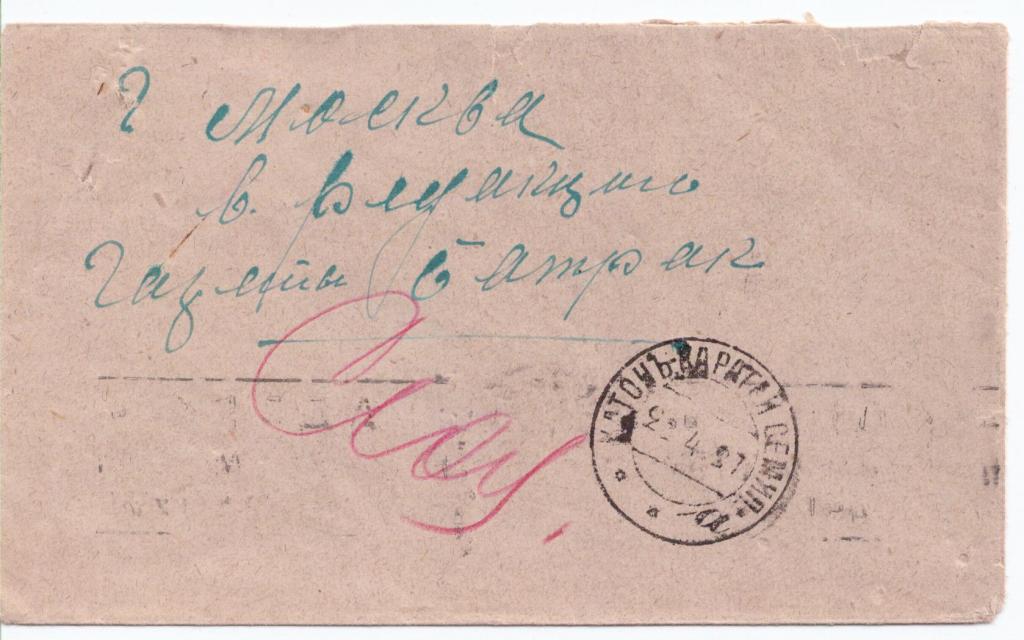 г Москва
в. редакцию
газеты Батрак
КАТОНЪ-КАРАГАЙ СЕМИП.
4 27